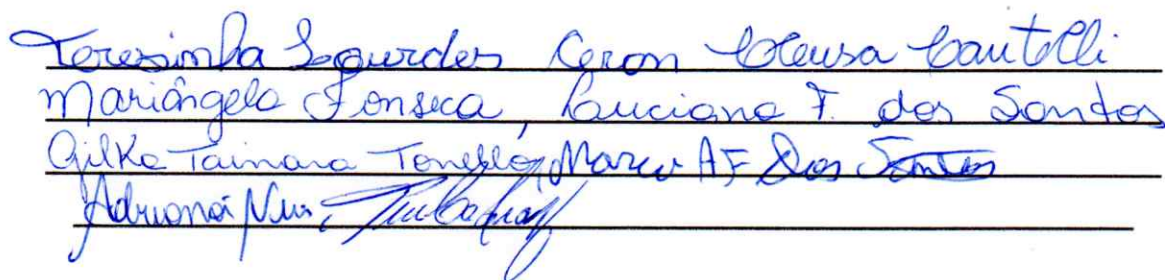 Teresinha Lourdes Ceron Cleusa Cantelli
Mariângela Fonseca, Lauciana F. dos Santos
Gilka Tainara Tonello, Marco AF Dos Santos
Adriana